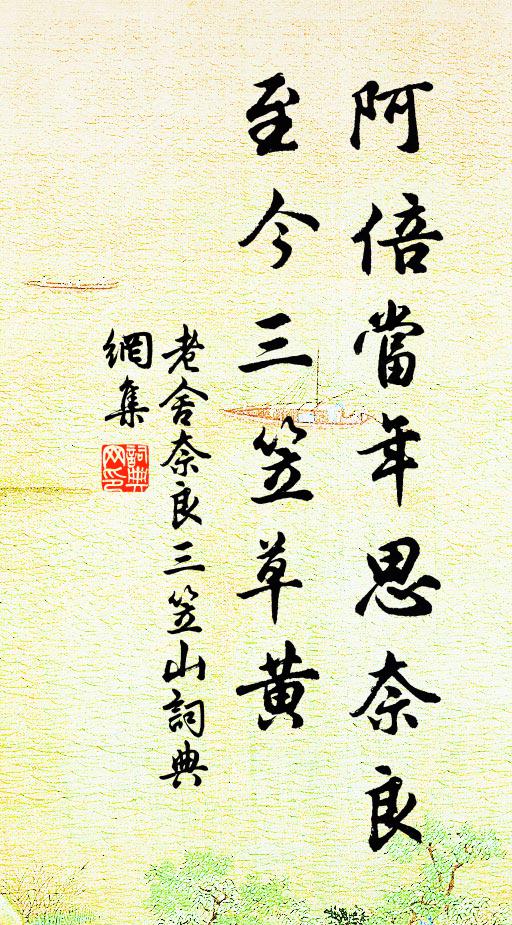 阿倍當年思奈良
至今三笠草黃
老舍奈良三笠山詞典
網集
詞典網印